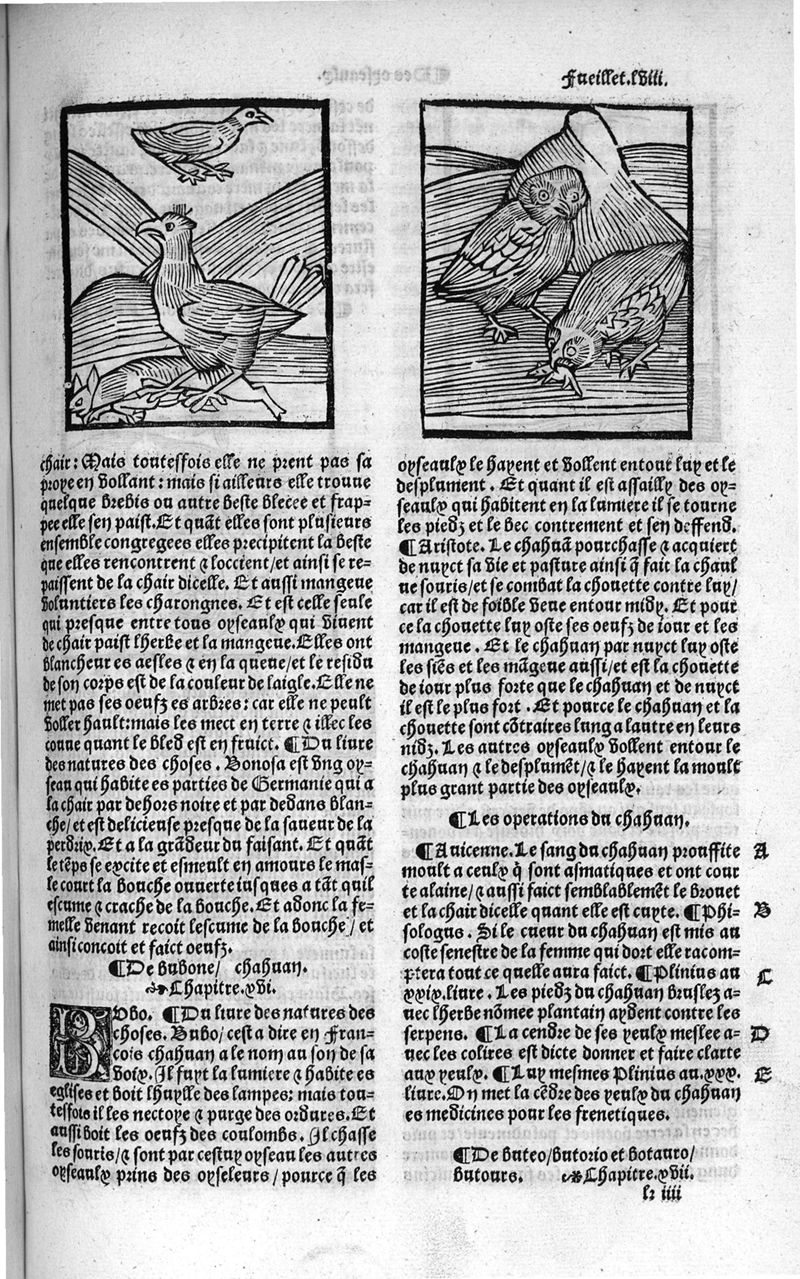 Fueillet.lviii.
chair: Mais toutesfois elle ne prent pas sa
proye en vollant: mais si ailleurs elle trouue
quelque brebis ou autre beste blecee et frap-
pee elle sen paist. Et quãt elles sont plusieurs
ensemble congregees elles precipitent la beste
que elles rencontrent ⁊ loccient/et ainsi se re-
paissent de la chair dicelle. Et aussi mangeue
voluntiers les charongnes. Et est celle seule
qui presque entre tous oyseaulx qui viuent
de chair paist lherbe et la mangeue. Elles ont
blancheur es aesles ⁊ en la queue/et le residu
de son corps est de la couleur de laigle. Elle ne
met pas ses oeufz es arbres: car elle ne peult
voller hault: mais les mect en terre ⁊ illec les
couue quant le bled est en fruict. ¶Du liure
des natures des choses. Bonosa est vng oy-
seau qui habite es parties de Germanie qui a
la chair par dehors noire et par dedans blan-
che/et est delicieuse presque de la saueur de la
perdrix. Et a la grãdeur du faisant. Et quãt
le tẽps se excite et esmeult en amours le mas-
le court la bouche ouuerte iusques a tãt quil
escume ⁊ crache de la bouche. Et adonc la fe-
melle venant recoit lescume de la bouche/et
ainsi concoit et faict oeufz.
¶De bubone/ chahuan.
Chapitre.xvi.
BVbo. ¶Du liure des natures des
choses. Bubo/cest a dire en Fran-
cois chahuan a le nom au son de sa
voix. Il fuyt la lumiere ⁊ habite es
eglises et boit lhuylle des lampes: mais tou-
tesfois il les nectoye ⁊ purge des ordures. Et
aussi boit les oeufz des coulombs. Il chasse
les souris/⁊ sont par cestuy oyseau les autres
oyseaulx prins des oyseleurs/pource q̃ les
oyseaulx le hayent et vollent entour luy et le
desplument. Et quant il est assailly des oy-
seaulx qui habitent en la lumiere il se tourne
les piedz et le bec contremont et sen deffend.
¶Aristote. Le chahuã pourchasse ⁊ acquiert
de nuyct sa vie et pasture ainsi q̃ fait la chaul
ue souris/et se combat la chouette contre luy/
car il est de foible veue entour midy. Et pour
ce la chouette luy oste ses oeufz de iour et les
mangeue. Et le chahuan par nuyct luy oste
les siẽs et les mãgeue aussi/et est la chouette
de iour plus forte que le chahuan et de nuyct
il est le plus fort. Et pource le chahuan et la
chouette sont cõtraires lung a lautre en leurs
nidz. Les autres oyseaulx vollent entour le
chahuan ⁊ le desplumẽt/⁊ le hayent la moult
plus grant partie des oyseaulx.
¶Les operations du chahuan.
¶Auicenne. Le sang du chahuan prouffite A
moult a ceulx q̃ sont asmatiques et ont cour
te alaine/⁊ aussi faict semblablemẽt le brouet
et la chair dicelle quant elle est cuyte. ¶Phi- B
sologus. Si le cueur du chahuan est mis au
coste senestre de la femme qui dort elle racom-
ptera tout ce quelle aura faict. ¶Plinius au C
xxix.liure. Les piedz du chahuan bruslez a-
uec lherbe nõmee plantain aydent contre les
serpens. ¶La cendre de ses yeulx meslee a- D
uec les colires est dicte donner et faire clarte
aux yeulx. ¶Luy mesmes Plinius au.xxx. E
liure. On met la cẽdre des yeulx du chahuan
es medicines pour les frenetiques.
¶De buteo/butorio et botauro/
butours. Chapitre.xvii.